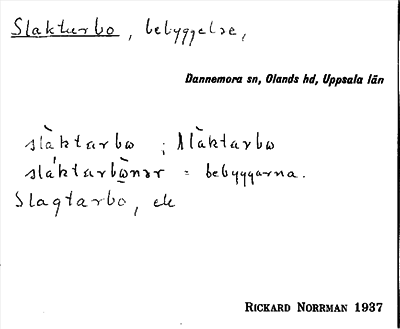 Slakturbo, bebyggelse,
Dannemora sn, Olands hd, Uppsala län
slàkturbω ; slàkturbω
slákturbὼnər = bebyggarna.
Slagtarbo, ek
RICKARD NORRMAN 1937